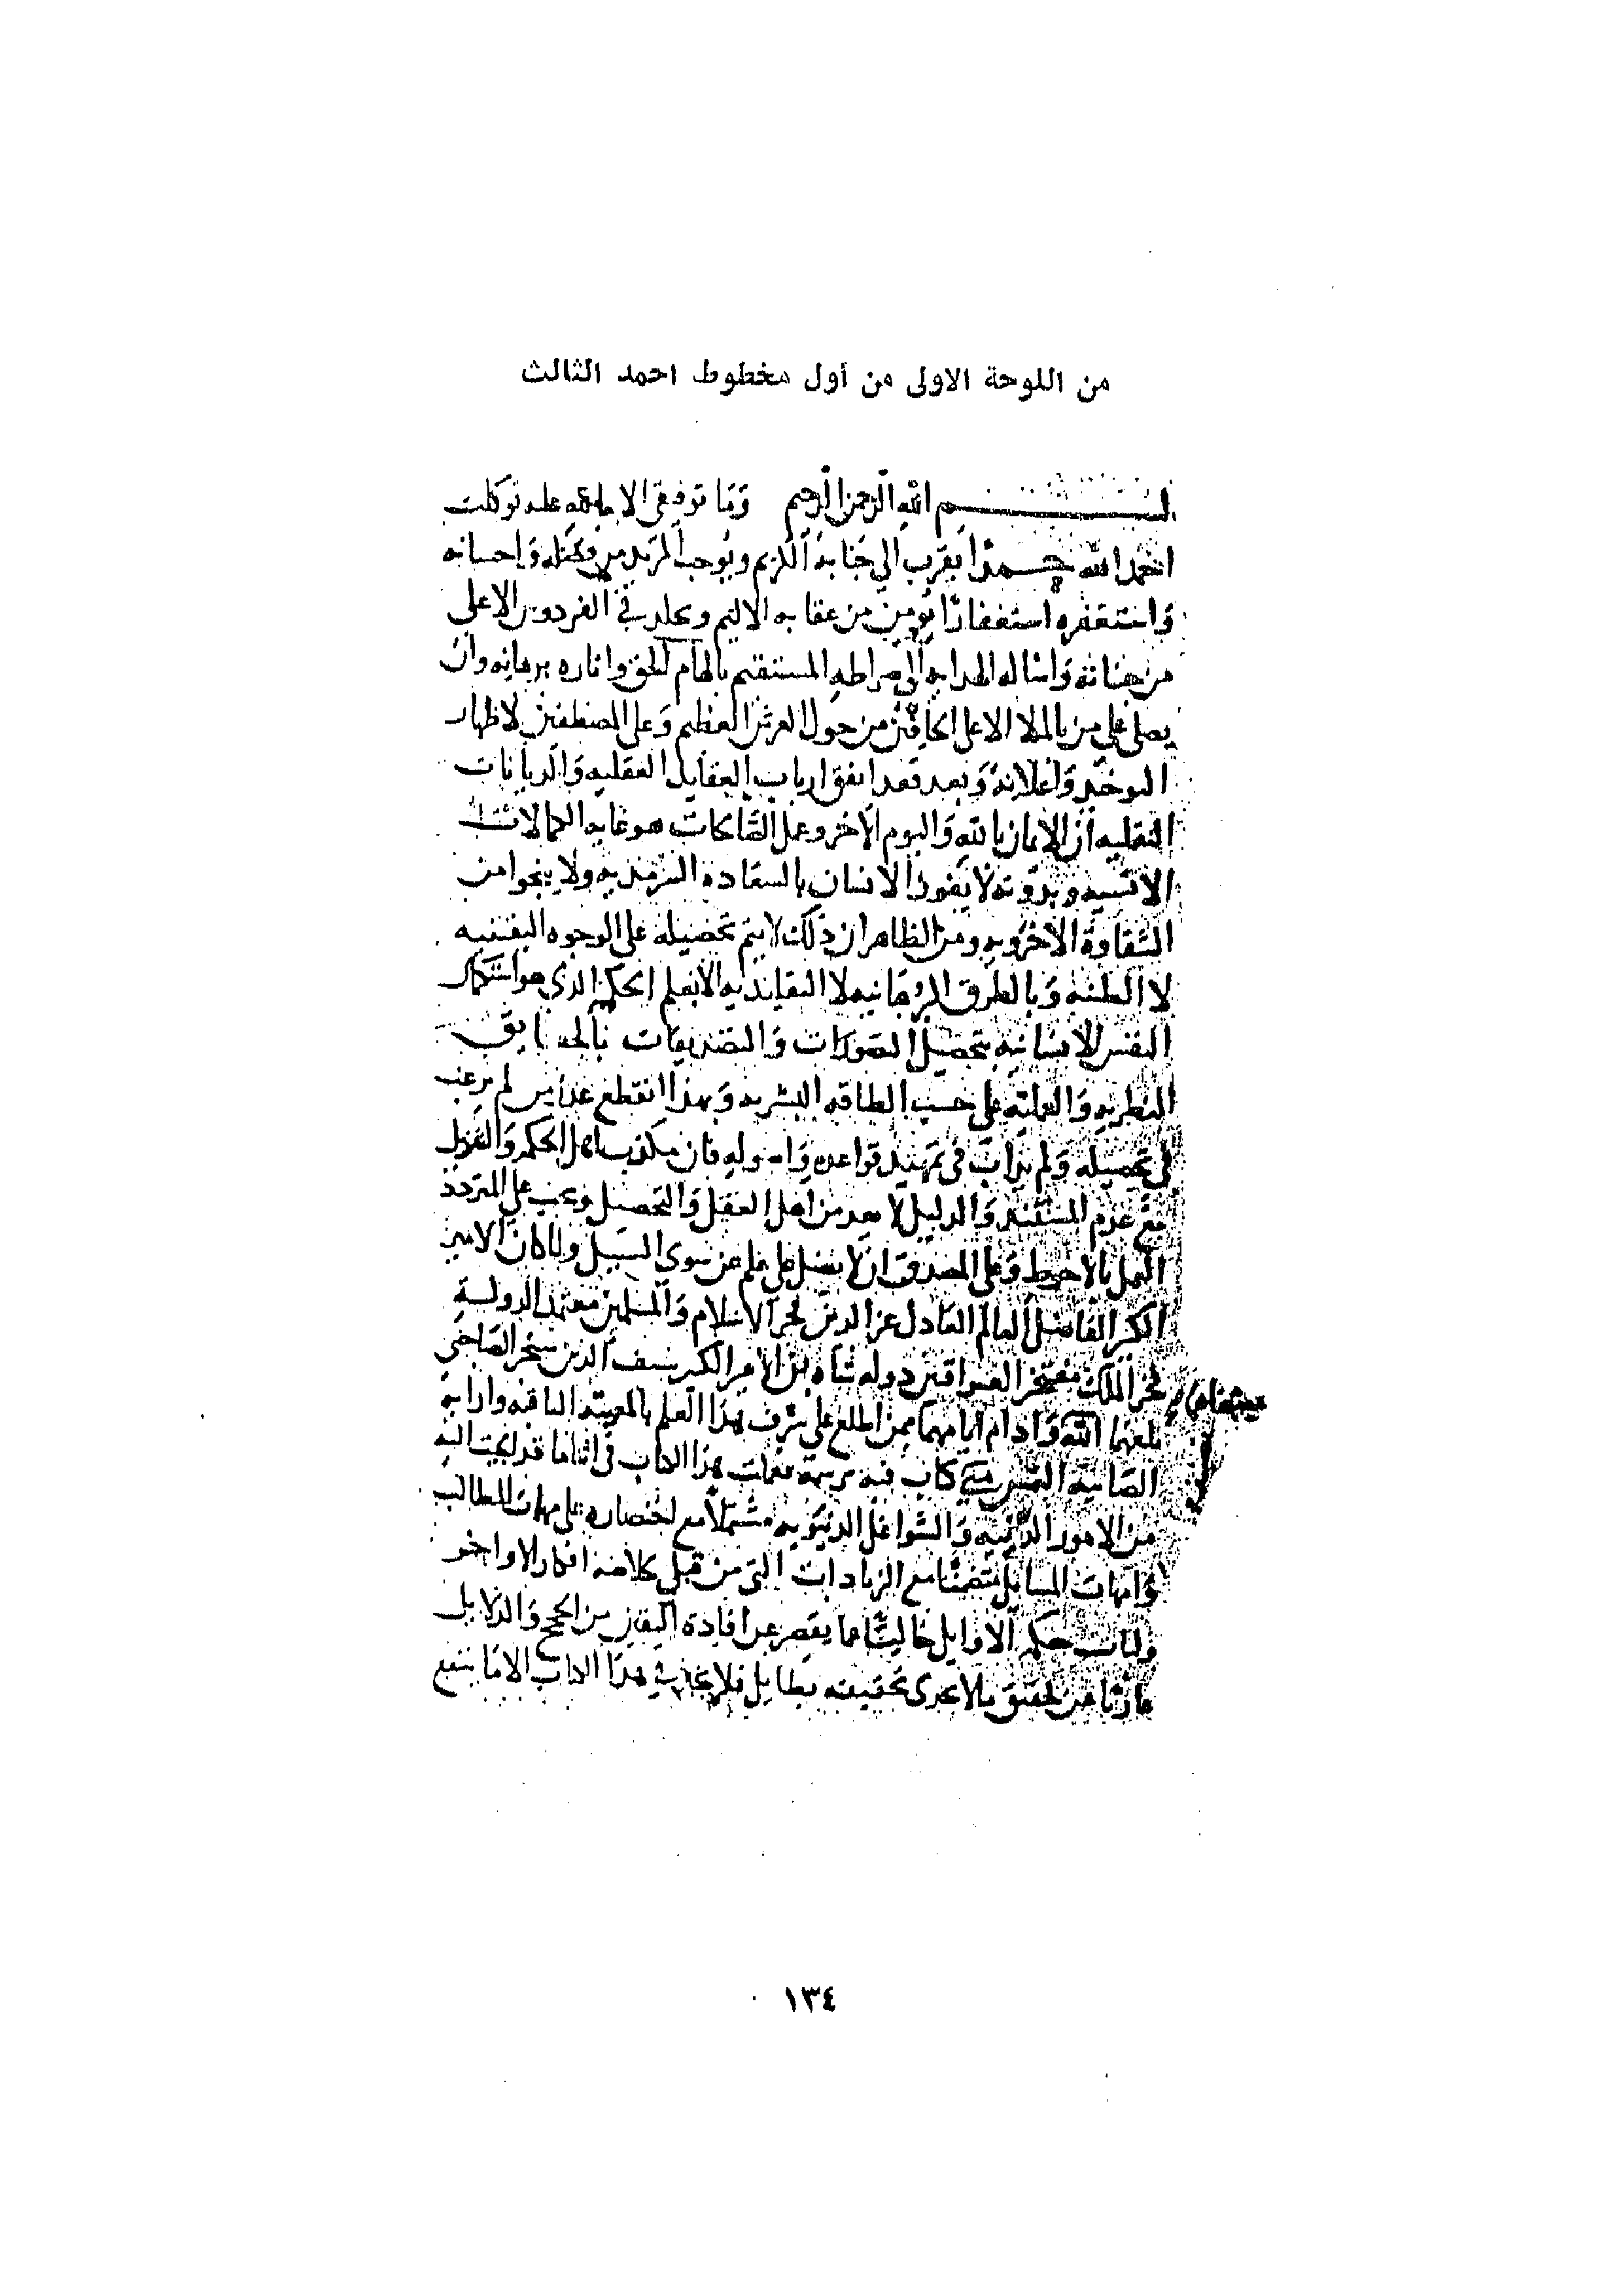 من اللوحة الاولى من أول مخطوط احمد الثالث
بسم الله الرحمن الرحيم وما توفيقى الا بالله عليه توكلت
احمد الله حمدا يقرب الى جنابه الكريم ويوجب المزيد من فضله واحسانه
واستغفره استغفارا يؤمن من عقابه الاليم ويخلد في الفردوس الاعلى
من جنانه واساله الهداية الى صراطه المستقيم بالهام الحق وانارة برهانه وان
يصلى على من بالملا الاعلى الحافين من حول العرش العظيم وعلى المصطفين لاظهار
التوحيد واعلانه وبعد فقد اتفق ارباب العقايد العقليه والديانات
النقليه ان الايمان بالله واليوم الاخر وعمل الصالحات هو غايه الكمالات
الانسيه وبدونه لا يفوز الانسان بالسعاده السرمديه ولا ينجوا من
الشقاوة الاخرويه ومن الظاهر ان ذلك لا يتم تحصيله على الوجوه اليقينيه
لا الظنيه وبالطرق البرهانيه لا التقليديه الا بعلم الحكمة الذى هو استكمال
النفس الانسانيه بتحصيل التصورات والتصديقات بالحقايق
النظريه والعمليه على حسب الطاقه البشريه وبهذا انقطع عذر من لم يرغب
فى تحصيله ولم يداب فى تمهيد قواعده واصوله فان مكذب اهل الحكمه والتنزيل
مع عدم المستند والدليل لا يعد من اهل العقل والتحصيل ويجب على المتردد
العمل بالاحوط وعلى المصدق ان لا يضل على علم عن سوى السبيل ولما كان الامير
الكبير الفاضل العالم العادل عز الدين فخر الاسلام والمسلمين معتمد الدولة
فخر الملك مفتخر العراقين دوله شاه بن الامير الكبير سيف الدين سنجر الصاحبى
بلغهما الله وادام ايامهما ممن اطلع على شرف هذا العلم بالمعيته الثاقبه وارايه
الصايبة التمس منى كتاب فيه برسمه فعملت هذا الكتاب فى اثناء ما قد الجيت اليه
من الامور الدينيه والشواغل الدنيويه مشتملا مع اختصاره على مهمات المطالب
وامهات المسايل متضمنا مع الزيادات التى من قبلى خلاصة افكار الاواخر
ولباب حكمة الاوايل خاليا عما يقصر عن افادة اليقين من الحجج والدلايل
عاريا عن تحقيق ما لا يجدى تحقيقه بطايل فلا يجد فى هذا الكتاب الا ما ينفع
١٣٤